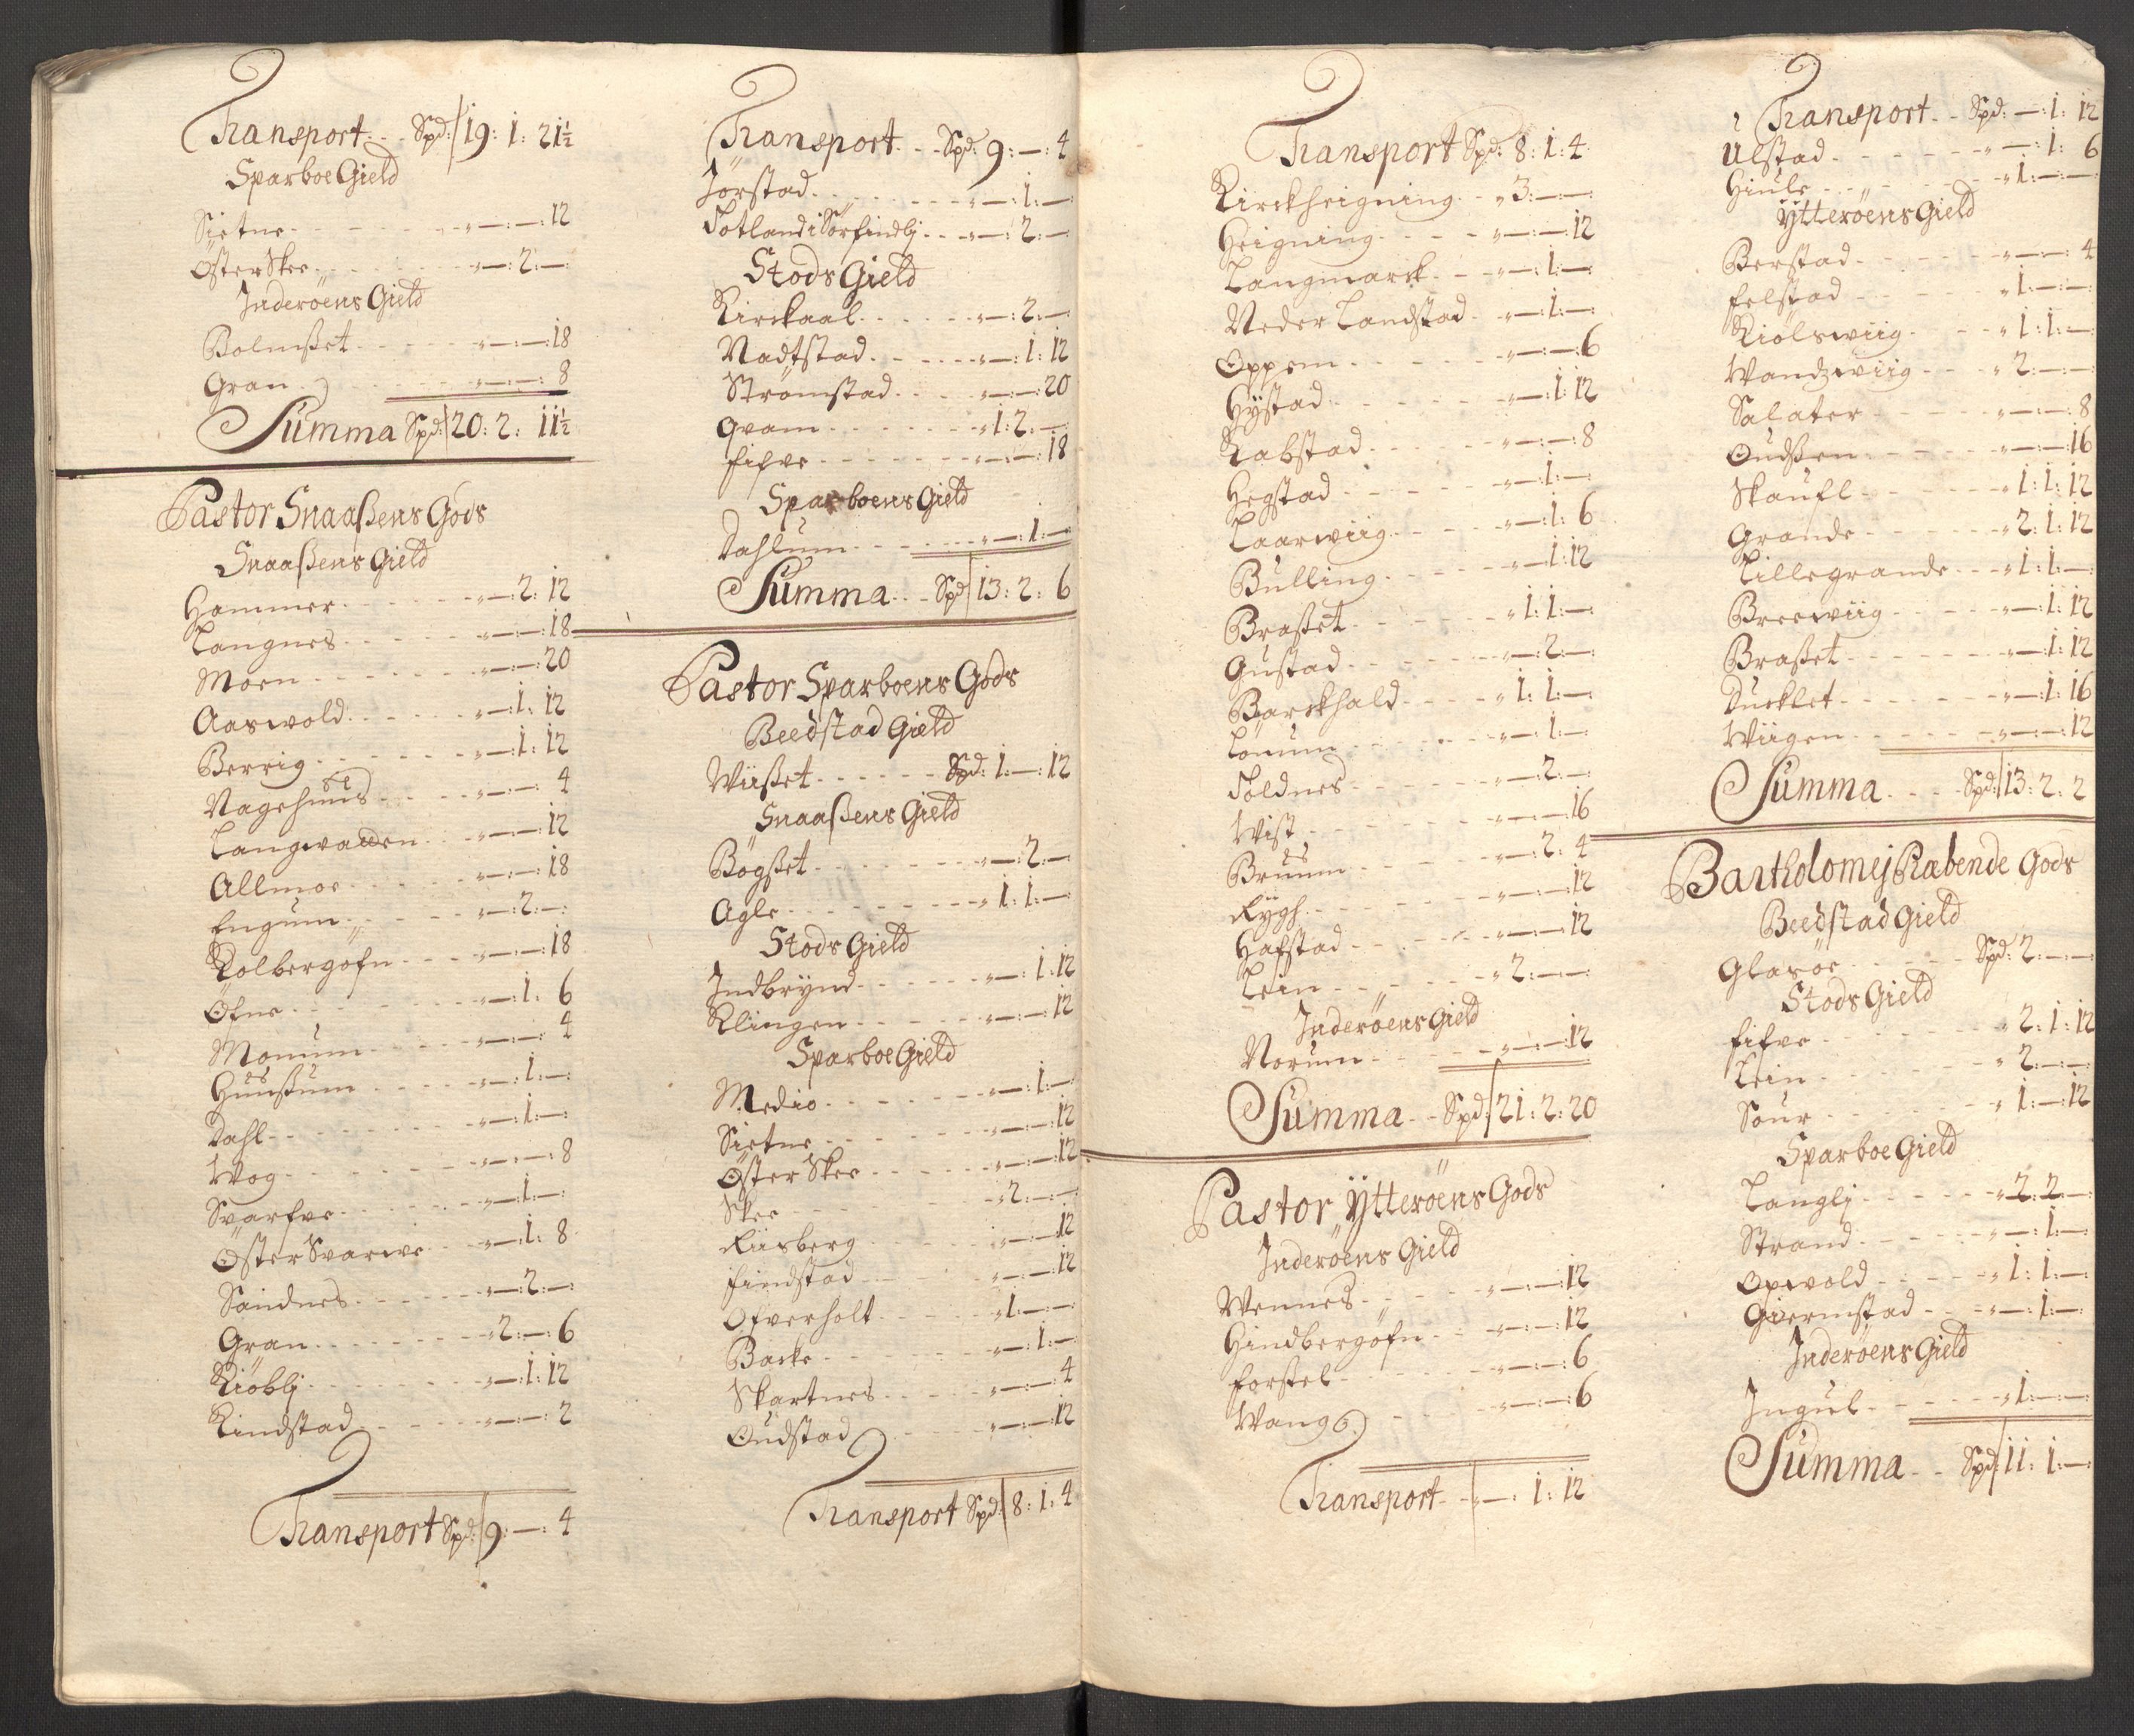 Transport Spd: 19: 1: 21½
Sparboe Gield
Sietne — : — : 12
Öster Skee — : 2 : —
Inderöens Gield
Bolmsset — : — : 18
Gran — : — : 8
Summa Spd: 20: 2: 11½
Pastor Snaassens Gods
Snaassens Gield
Hammer — : 2: 12
Langnes — : — : 18
Moen — : — : 20
Aaswold — : 1: 12
Berrig — : 1: 12
Nagehuus — : — : 4
— : — : 12
Allmoe — : — : 18
Engum — : 2 : —
Kolbergöfn — : — : 18
Öfne — : 1: 6
Monum — : — : 4
Hunssum — : 1 : —
Dahl — : 1 : —
Wog — : — : 8
Svarfve — : 1 : —
Öster Svarwe — : 1: 8
Sandnes — : 2 : —
Gran 2 : — : 6
Kiöblj — : 1: 12
Kindstad — : — : 2
Transport Spd: 9 : — : 4
Transport Spd: 9 : — : 4
Jörstad — : 1 : —
Totland i Sörfindlj — : 2 : —
Stods Gield
Kirckaal — : 2 : —
Nadtstad — : 1: 12
Strömstad — : — : 20
Qvam 1: 2 : —
fifve — : — : 18
Sparboens Gield
Dahlum — : 1 : —
Summa Spd 13: 2: 6
Pastor Sparboens Gods
Beedstad Gield
Wiisset Spd: 1 : — : 12
Snaassens Gield
Bögsset — : 2 : —
Agle 1: 1 : —
Stods Gield
Indbrÿnd — : 1: 12
Klingen — : — : 12
Sparboe Gield
Medio — : 1 : —
Sietne — : — : 12
Öster Skee — : — : 12
Skee 2 : — : —
Riisberg — : — : 12
findstad — : — : 12
Ofverholt 1 : — : —
Backe — : 1 : —
Skartnes — : — : 4
Oudstad — : — : 12
Transport Spd: 8: 1: 4
Transport Spd: 8: 1: 4
Kirckheigning 3 : — : —
Heigning — : — : 12
Langmarck — : 1 : —
Neder Landstad — : 1 : —
Oppem — : — : 6
Hÿstad — : 1: 12
Kabstad — : — : 8
Hegstad — : 1 : —
Laarwiig — : 1: 6
Bulling — : 1: 12
Brasset 1: 1 : —
Gustad — : 2 : —
Barckhald 1: 1 : —
Lönum — : 1 : —
Toldnes — : 2 : —
Wist — : — : 16
Bruum — : 2: 4
Rÿgh — : — : 12
Hafstad — : — : 12
Lein 2 : — : —
Inderöens Gield
Norum — : — : 12
Summa Spd: 21: 2: 20
Pastor Ÿtteröens Gods
Inderöens Gield
Wennes — : — : 12
Hindbergöfn — : — : 12
forstel — : — : 6
Wang — : — : 6
Transport — : 1: 12
Transport Spd: — : 1: 12
Ulstad — : 1: 6
Hiule 1 : — : —
Ÿtteröens Gield
Berstad — : — : 4
felstad 1 : — : —
Kiölswiig 1: 1 : —
Wandzwiig 2 : — : —
Salater — : — : 8
Oudssen — : — : 16
Skaufl 1: 1: 12
Grande 2: 1: 12
Lillegrande 1: 1 : —
Breewiig — : 1: 12
Brasset — : 1: 12
Ducklet — : 1: 16
Wiigen — : — : 12
Summa Spd: 13: 2: 2
Bartholomej Præbende Gods
Beedstad Gield
Glasöe Spd: 2 : — : —
Stods Gield
fifve 2: 1: 12
Lein 2 : — : —
Sour 1 : — : 12
Sparboe Gield
Langlj 2: 2 : —
Strand — : 1 : —
Opwold 1: 1 : —
Giermstad — : 1 : —
Inderöens Gield
Ingul 1 : — : —
Summa Spd: 11: 1 : —